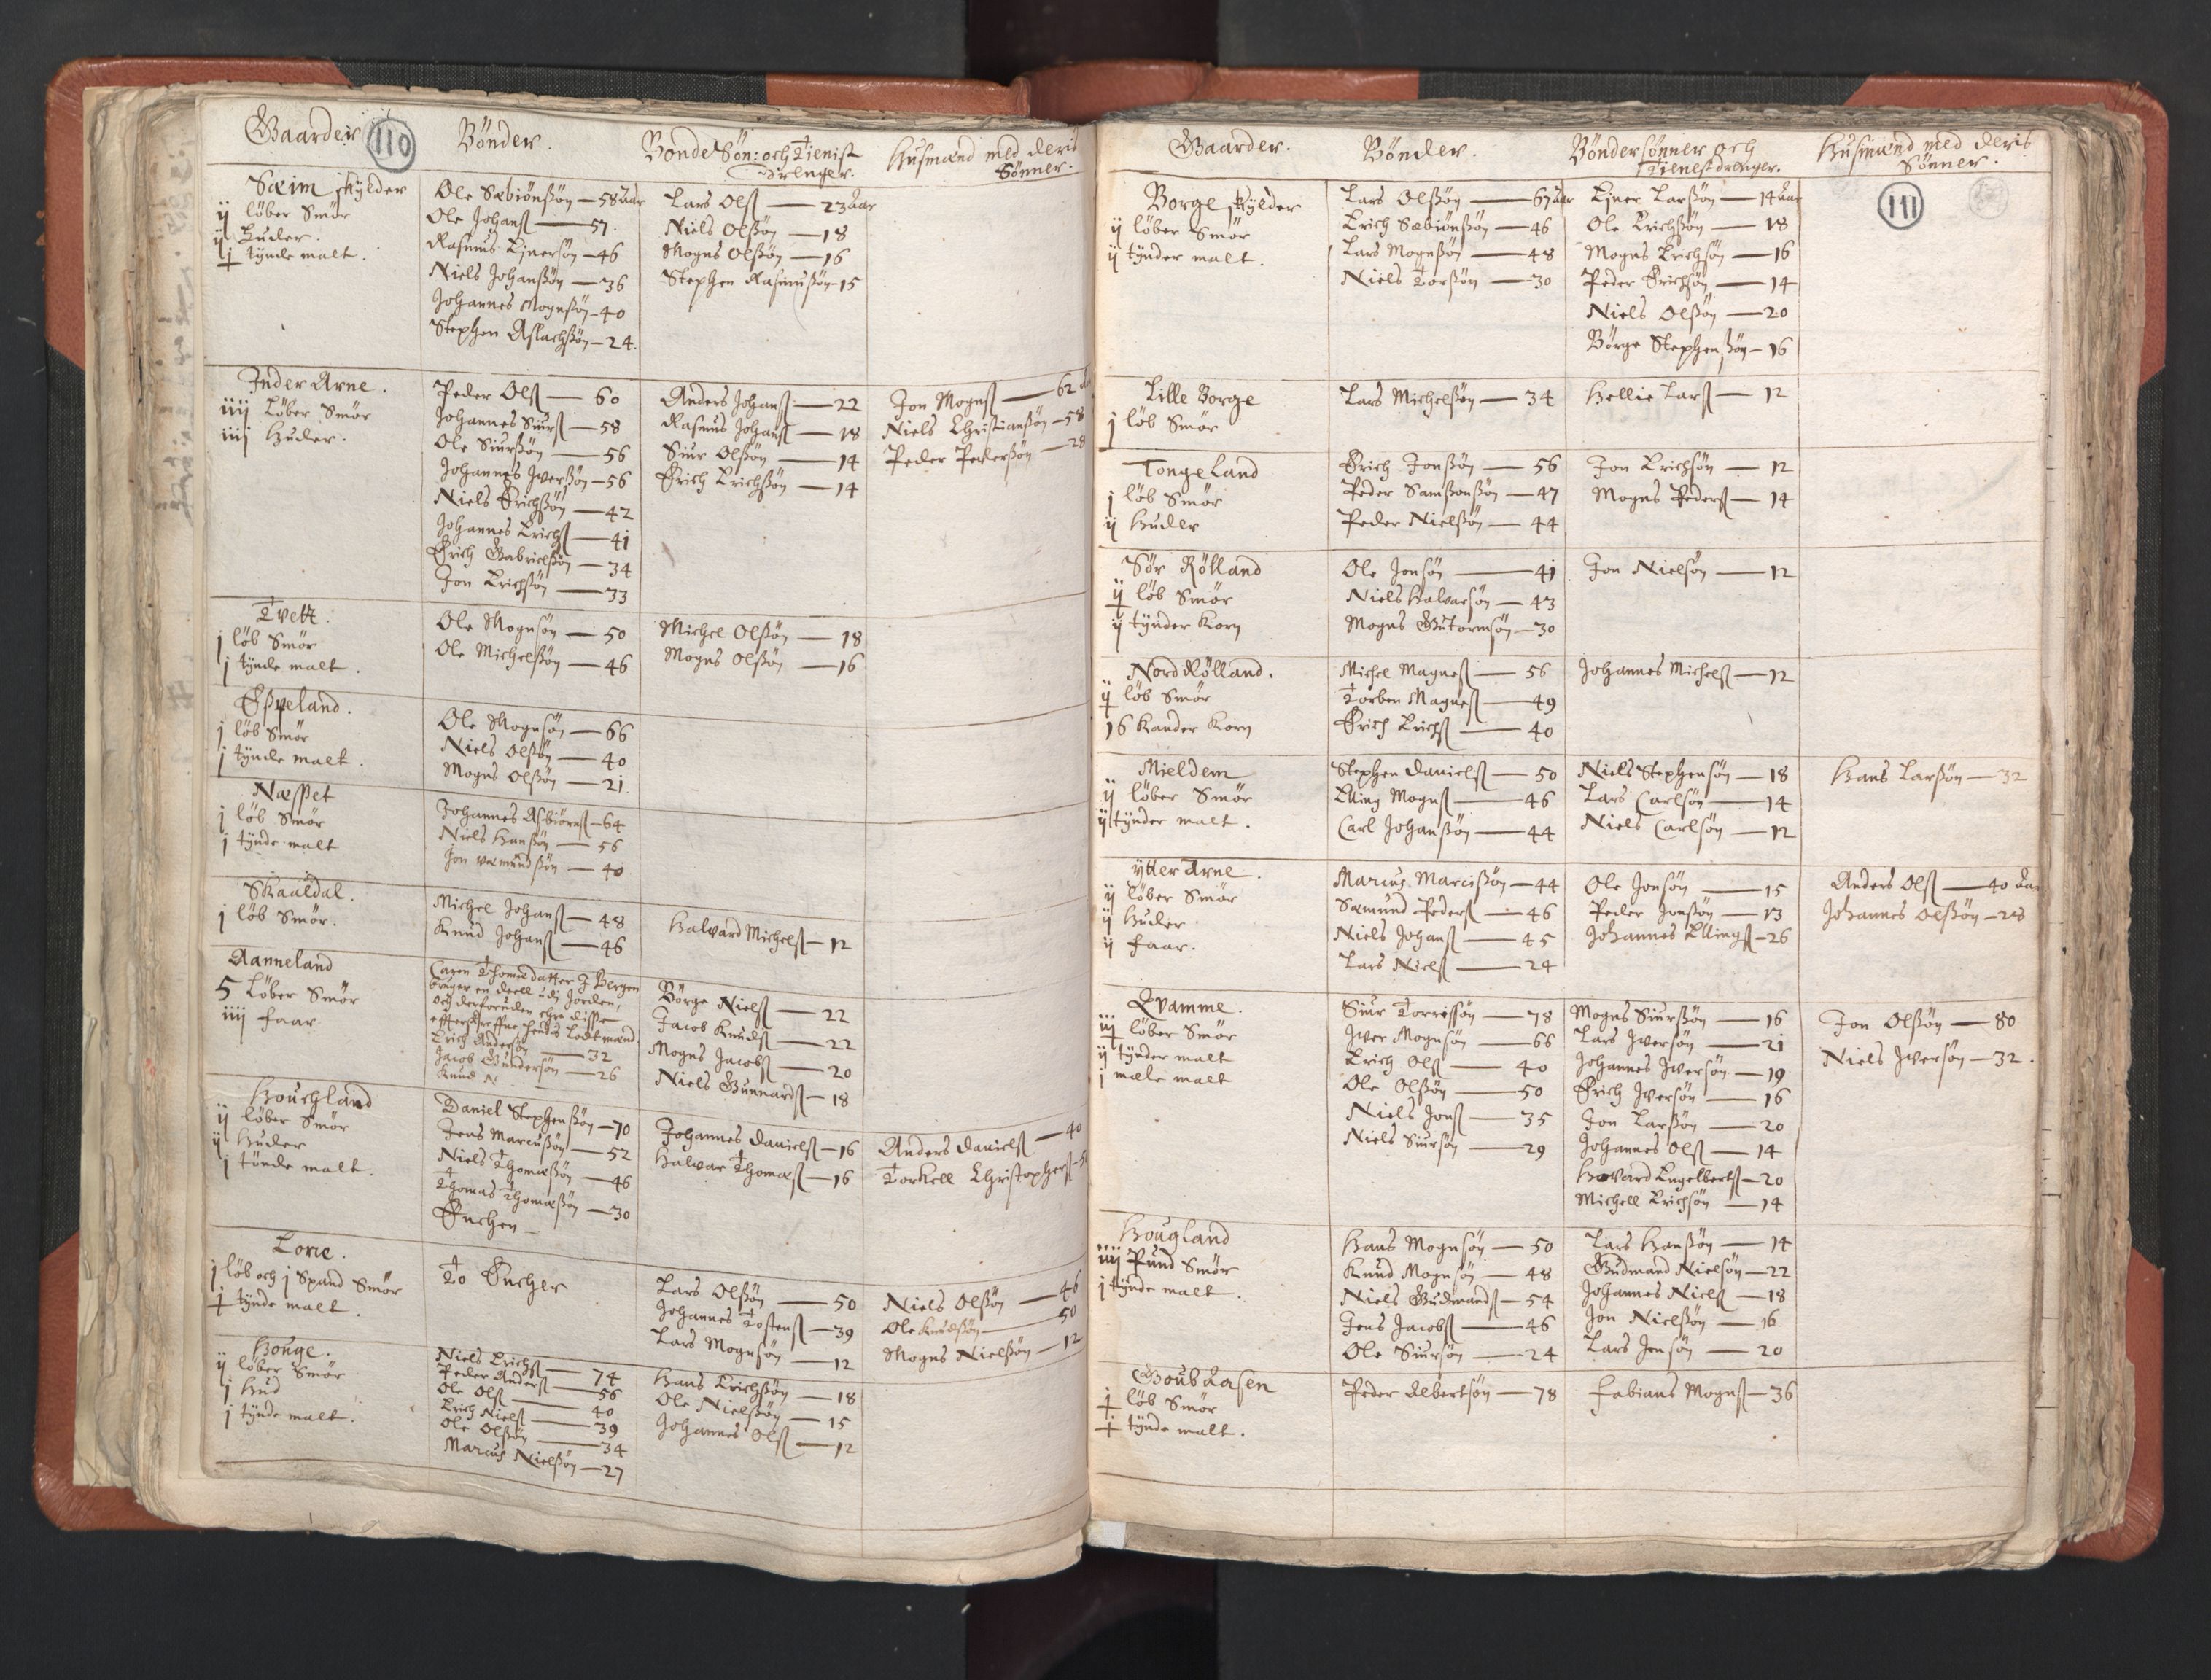 110
Gaarder
Bönder.
Bonde Søn: och Tienist
drenger.
Husmænd med deris
Sönner.
Sæim skylder
ij löber Smör
ij Huder.
tynde malt.
Ole Sæbiönßön — 58 aar
Ole Johanß — 57.
Rasmus Ejnersön — 46
Niels Johanßön — 36
Johannes Mogenßön — 40
Stephen Aslachßön — 24.
Lars Olß — 23 aar
Niels Olßön — 18
Mogns Olßön — 16
Stephen Rasmußön — 15
Inder Arne.
iiij Löber Smör
iij Huder.
Peder Olß — 60
Johannes Siurß — 58
Ole Siurßön — 56
Johannes Iverßön — 56
Niels Erichßön — 42
Johannes Erichß — 41
Erich Gabrielßön — 34
Jon Erichßön — 33
Anders Johanß — 22
Rasmus Johanß — 18
Siur Olßön — 14
Erich Erichßön — 14
Jon Mognß — 62
Niels Christianßön — 58
Peder Pederßön — 28
Tvett.
j löb Smör
j tynde malt.
Ole Mognsön — 50
Ole Michelßön — 46
Michel Olßön — 18
Mogns Olßön — 16
Espeland.
j löb Smör
j tynde malt.
Ole Mognsön — 66
Niels Olßön — 40
Mogns Olßön — 21
Næsset
j löb Smör
j tynde malt
Johannes Asbiörnß — 64
Niels Hanßön — 56
Jon Væmundßön — 40
Skauldal.
j löb Smör.
Michel Johanß — 48
Knud Johanß — 46
Halvard Michelß — 12
Aanneland
5 Löber Smör
iiij faar
Caren Thomædatter I Bergen
bruger en deell udj Jorden,
och derforuden ehr disse
effterskreffne hendis Lodtmænd
Erich Andersön — 32
Jacob Gundersön — 26
Knud N:
Börge Nielß — 22
Jacob Knudß — 22
Mogns Jacobß — 20
Niels Gunnardß — 18
Houghland
ij löber Smör
ij Huder
j tönde malt.
Daniel Stephenßön — 70
Jens Marcußön — 52
Niels Thomæßön — 46
Thomas Thomæßön — 30
Enchen —
Johannes Danielß — 16
Halvar Thomæß — 16
Anders Danielß — 40
Torkell Christopherß
Lone.
j löb och j Spand Smör
tynde malt.
To Encher
Lars Olßön — 50
Johannes Tostenß — 39
Lars Mognsön — 12
Niels Olßön — 46
Ole Knudßön — 50
Mogns Nielßön — 12
Houge.
ij löber Smör
j Hud
j tynde malt.
Niels Erichß — 74
Peder Anderß — 56
Ole Olß — 40
Erich Nielß — 39
Ole Olßön — 34
Marcus Nielßön — 27
Hans Erichßön — 18
Ole Nielßön — 15
Johannes Olß — 12
Gaarder.
Bönder.
Bönder sönner och
Tienest drenger.
Husmænd med deris
Sönner.
111
Borge skylder
ij löber Smör
ij tynder malt.
Lars Olßön — 67 aar
Erich Sæbiönßön — 46
Lars Mognßön — 48
Niels Torßön — 30
Ejner Larßön — 14 aar
Ole Erichßön — 18
Mogns Erichßön — 16
Peder Erichßön — 14
Niels Olßön — 20
Börge Stephenßön — 16
Lille Borge
j löb Smör
Lars Michelßön — 34
Hellie Larß — 12
Tongeland
j löb Smör
ij Huder
Erich Jonßön — 56
Peder Samßonßön — 47
Peder Nielßön — 44
Jon Erichsön — 12
Mogns Pederß — 14
Sör Rölland
löb Smör
ij tynder Korn
Ole Jonsön — 41
Niels Halvarsön — 43
Mogns Gutormsön — 30
Jon Nielsön — 12
Nord Rölland.
löb Smör
16 Kander Korn
Michel Magneß — 56
Torben Magneß — 49
Erich Erichß — 40
Johannes Michelß — 12
Mieldem
ij löber Smör
ij tynder malt.
Stephen Danielß — 50
Elling Mognß — 46
Carl Johanßön — 44
Niels Stephensön — 18
Lars Carlsön — 14
Niels Carlsön — 12
Hans Larßön — 32
ytter Arne.
ij löber Smör
ij Huder
ij faar.
Marcus Marcusßön — 44
Sæmund Pederß — 46
Niels Johanß — 45
Lars Nielß — 24
Ole Jonsön — 15
Peder Jonßön — 13
Johannes Ellingß — 26
Anders Olß — 40 aar
Johannes Olßön — 28
Qvamme.
löber Smör
ij tynder malt
j mæle malt
Siur Torrissön — 78
Iver Mognsön — 66
Erich Olß — 40
Ole Olßön — 50
Niels Jonß — 35
Niels Siursön — 29
Mogns Siurßön — 16
Lars Iversön — 21
Johannes Iversön — 19
Erich Iversön — 16
Jon Larßön — 20
Johannes Olß — 14
Havard Engelbertß — 20
Michell Erichsön — 14
Jon Olßön — 80
Niels Iversön — 32.
Hougland
iiij Pund Smör
j tynde malt.
Hans Mognsön — 50
Knud Mognsön — 48
Niels Gudmandß — 54
Jens Jacobß — 46
Ole Siursön — 24
Lars Hanßön — 14
Gudmand Nielsön — 22
Johannes Nielß — 18
Jon Nielßön — 16
Lars Jensön — 20
löb Smör
tynde malt.
Peder Albertsön — 78
Fabians Mognß — 36